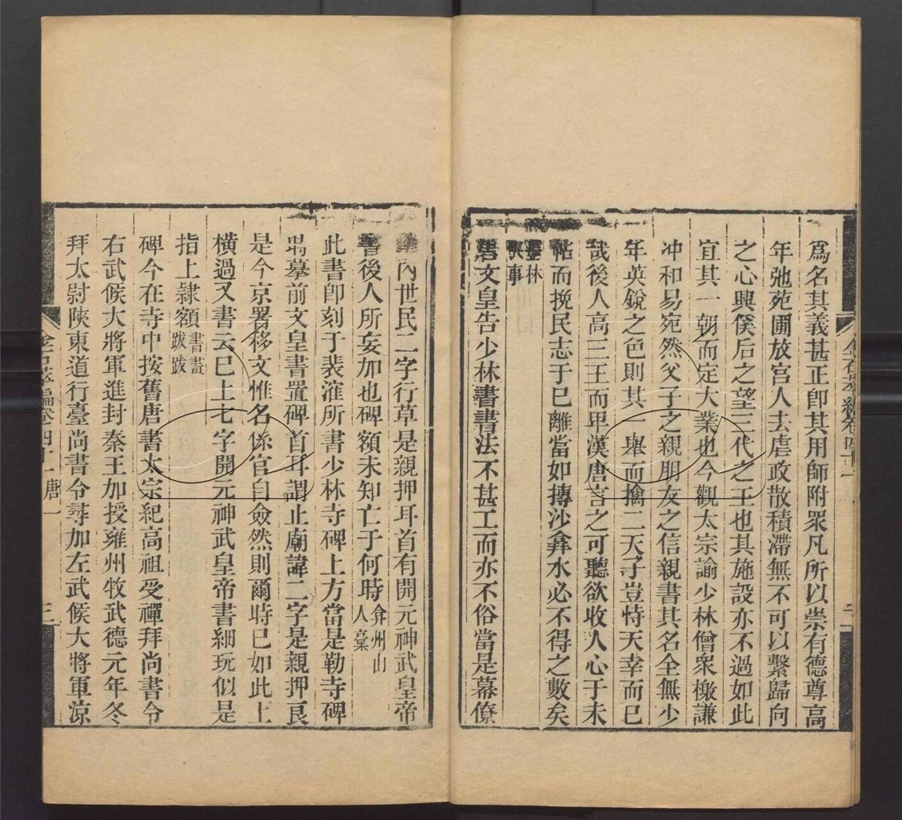 爲名其義甚正卽其用師附衆凡所以崇有德尊高
年弛苑圃放宮人去虐政散積滯無不可以繫歸向
之心興徯后之望三代之王也其施設亦不過如此
宜其一朝而定大業也今觀太宗諭少林僧衆檄謙
冲和易宛然父子之親朋友之信親書其名全無少
年英銳之色則其一舉而擒二天子豈恃天幸而已
哉後人高三王而卑漢唐言之可聽欲收人心于未
帖而挽民志于已離當如摶沙弄水必不得之數矣
墨林
快事
唐文皇告少林書書法不甚工而亦不俗當是幕僚
金石萃編卷四十一
二
內世民二字行草是親押耳首有開元神武皇帝
書後人所妄加也碑額未知亡于何時弇州山
人藁
此書卽刻于裴漼所書少林寺碑上方當是勒寺碑
時摹前文皇書置碑首耳謂止廟諱二字是親押良
是今京署移文惟名係官自僉然則爾時已如此上
橫過又書云已上七字開元神武皇帝書細玩似是
指上隷額書畫
跋跋
碑今在寺中按舊唐書太宗紀高祖受禪拜尚書令
右武候大將軍進封秦王加授雍州牧武德元年冬
拜太尉陝東道行臺尚書令尋加左武候大將軍涼
金石萃編卷四十一 唐一
三